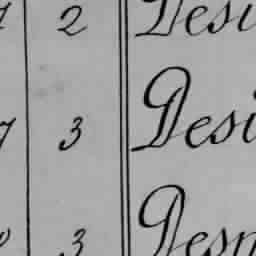 2 Desi
7 3 Desi
3 Desp